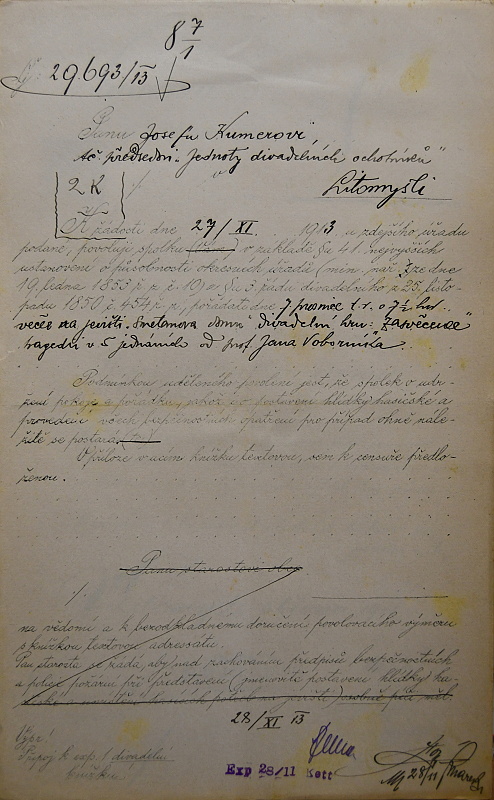 8 7/1
29693/13
Panu Josefu Kumerovi,
tč. předsedovi „Jednoty divadelních ochotníků"
Litomyšli
2 K
K žádosti dne 27/XI. 1913 u zdejšího úřadu
podané, povoluji spolku v základě §u 41. nejvyšších
ustanovení o působnosti okresních úřadů (min. nař. ze dne
19. ledna 1853 ř. z. č. 10) a §u 5 řádu divadelního z 25. listo-
padu 1850 č. 454 ř. z., pořádati dne 7. prosince t. r. o 7½ hod.
večer na jevišti Smetanova domu divadelní hru: „Zasvěcení"
tragedii v 5 jednáních od prof. Jana Voborníka.
Podmínkou uděleného povolení jest, že spolek o udr-
žení pokoje a pořádku, jakož i o postavení hlídky hasičské a
provedení všech bezpečnostních opatření pro případ ohně nále-
žitě se postará.
O přílože vracím knížku textovou, sem k censuře předlo-
ženou.
Panu starostovi obce
na vědomí a k bezodkladnému doručení povolovacího výměru
s knížkou textovou adressátu.
Pan starosta se žádá, aby nad zachováním předpisů bezpečnostních
a policie požární při představení (jmenovitě postavení hlídky ha-
28/XI 13
Připoj k exp. 1 divadelní
knížku
Exp 28/11 Kett
28/11